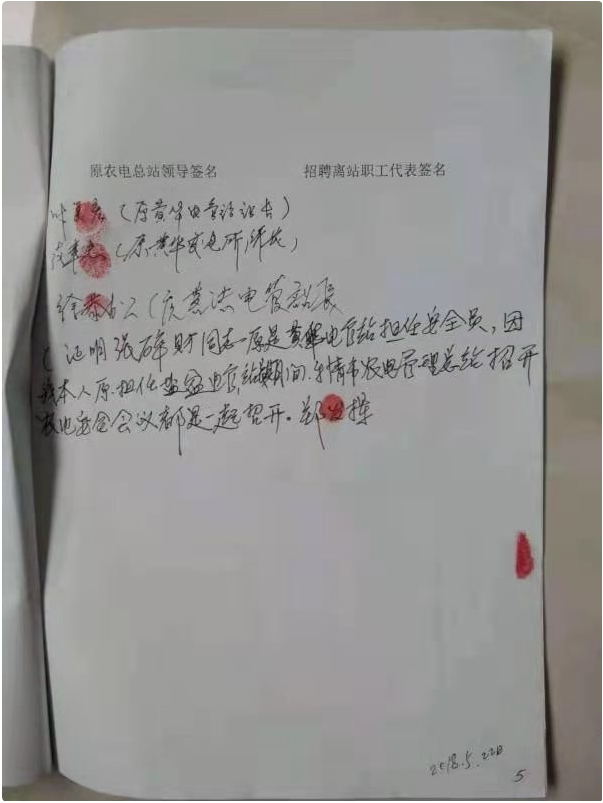 原农电总站领导签名 招聘离站职工代表签名
叶 (原黄华电管站站长)
(原黄华变电所所长)
徐 (原 电管站长
(证明张碎财同志原是黄华电管站担任安全员,因
我本人原担任盐盆电管站期间,乐清市农电管理总站招开
农电安全会议都是一起招开。郑 操
2018.5.22日
5